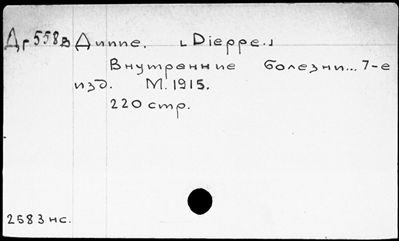 Дг 558в Диппе. [Dieppe.]
Внутренние болезни... 7-е
изд. М. 1915.
220 стр.
2583 нс.